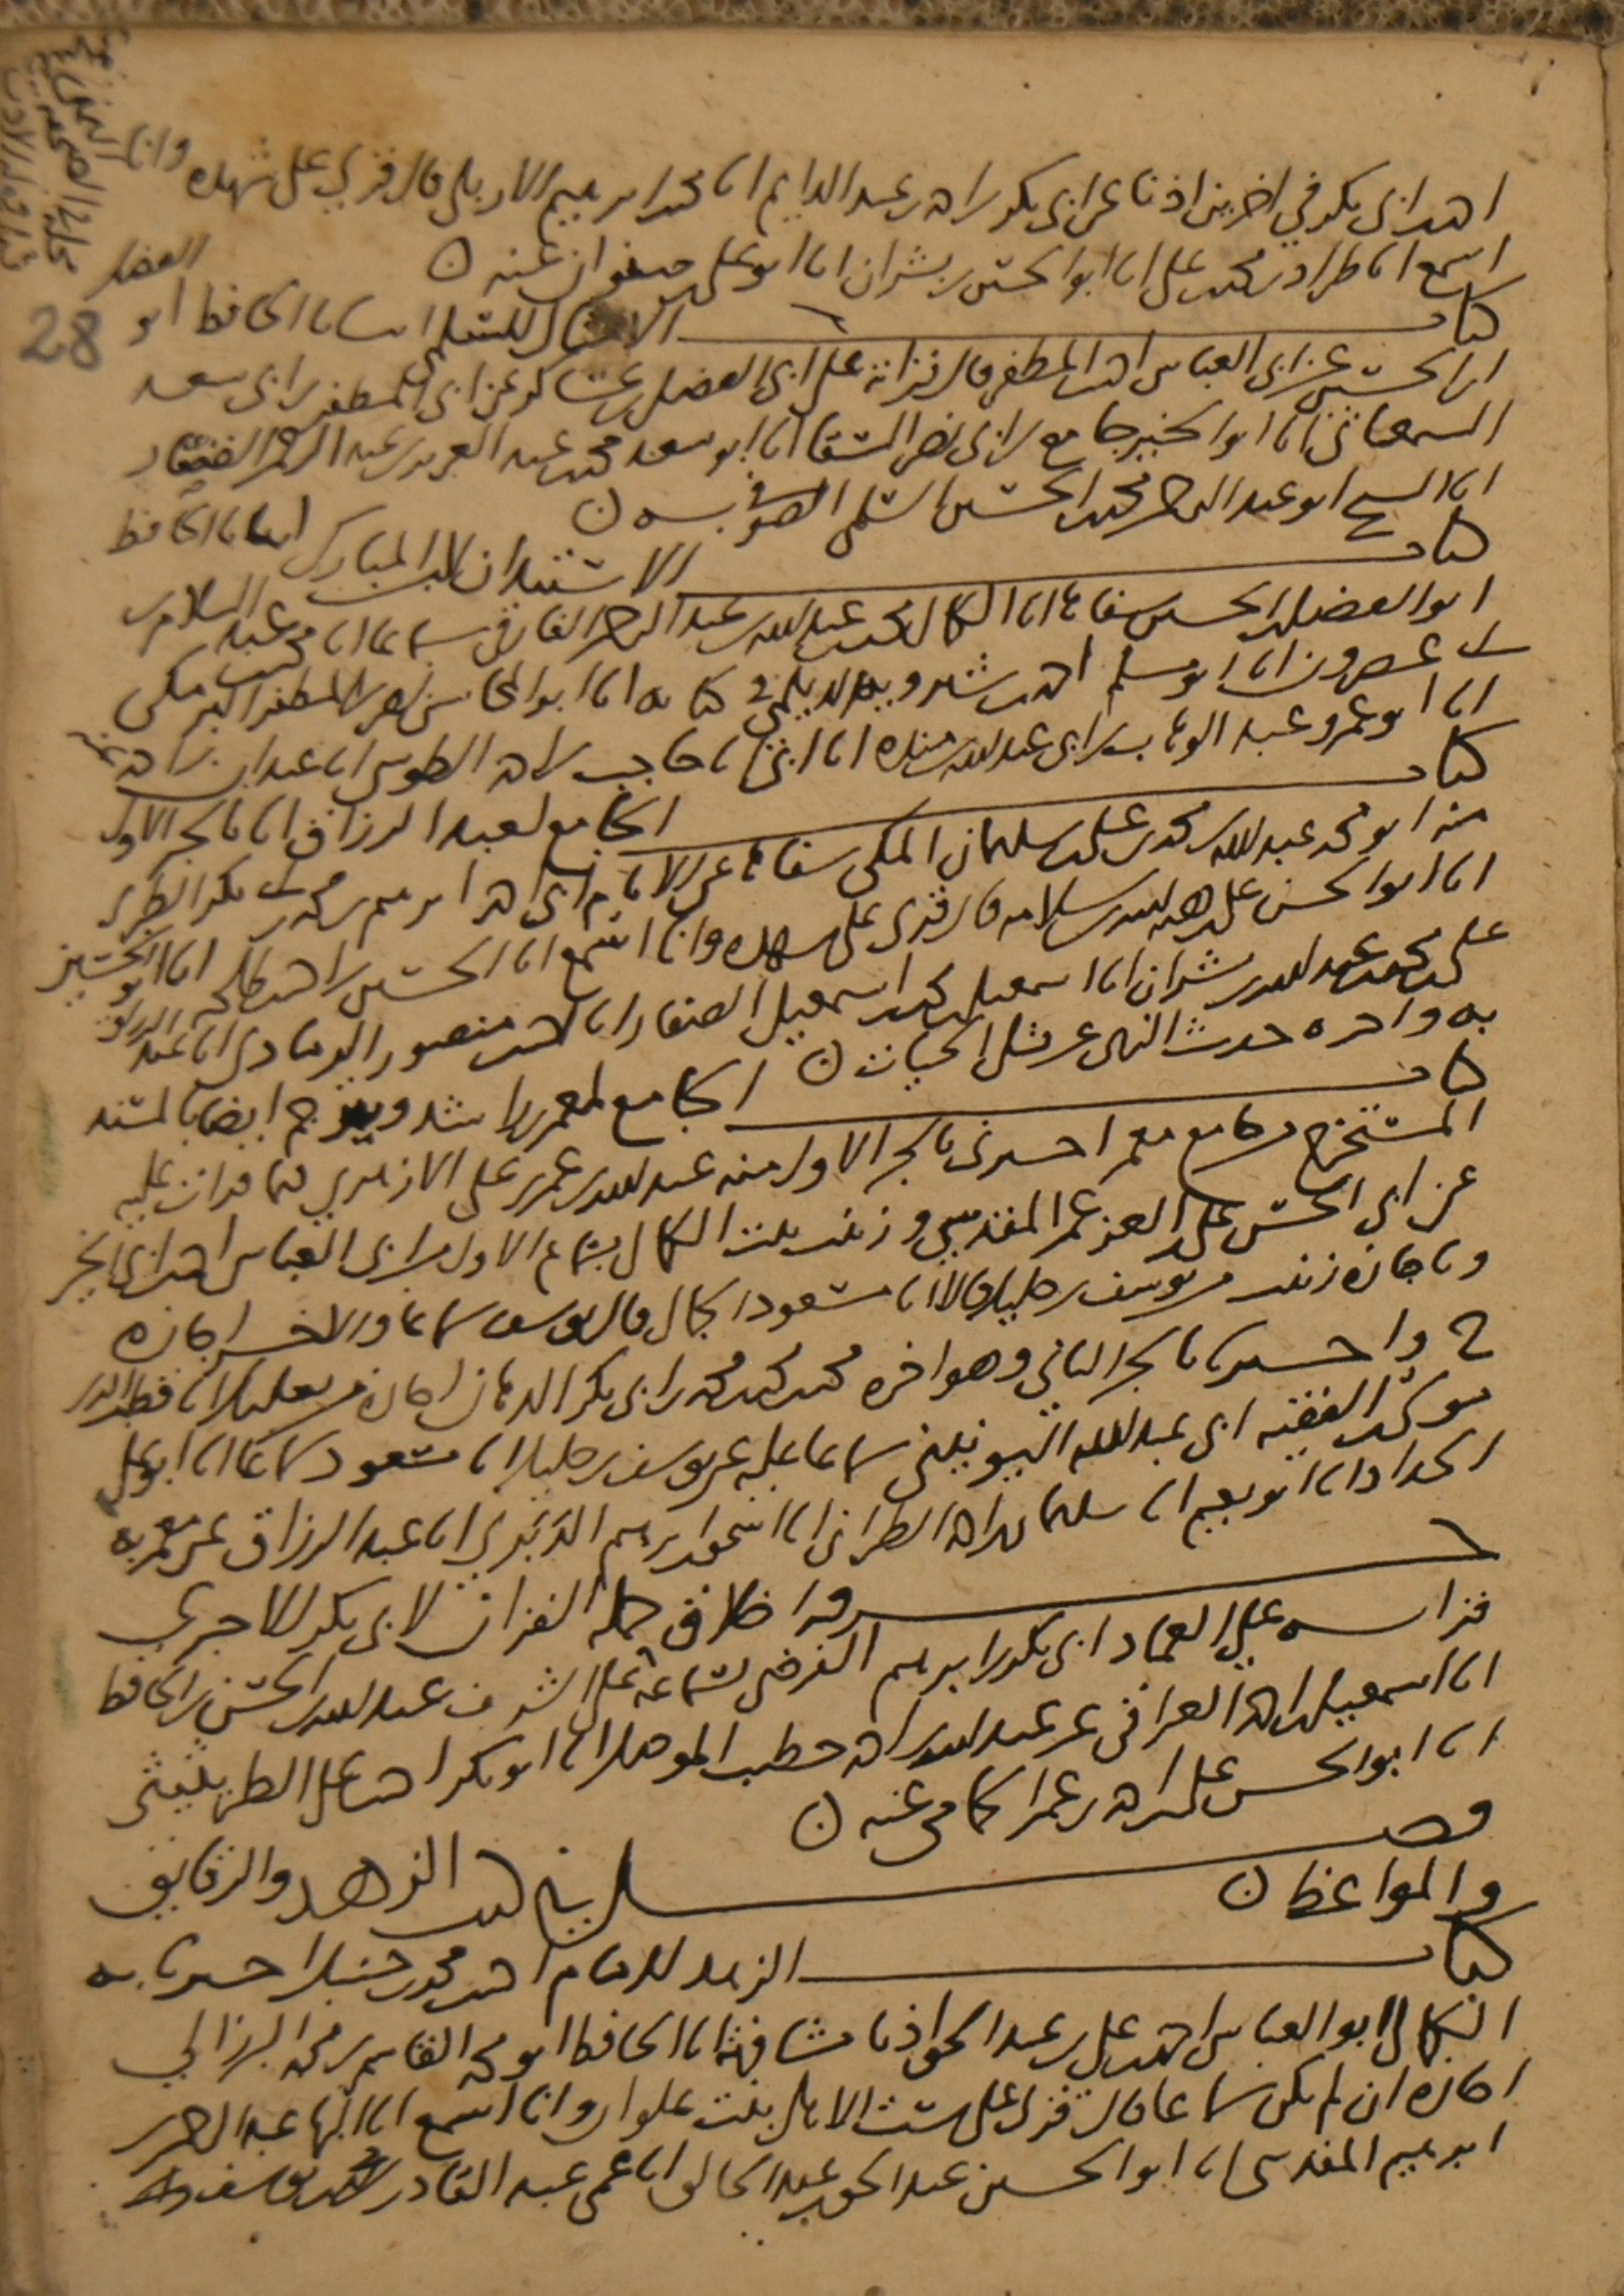 احمد ابن ابي بكر في اخرين اذنا عن ابي بكر بن احمد بن عبد الدايم انا محمد بن ابرهيم الاربلي قال قرئ على شهده وانا
اسمع انا طراد بن محمد بن علي انا ابو الحسين بن بشران انا ابو علي بن صفوان عنه
كتاب الامثال للسلمي انبانا الحافظ ابو الفضل
ابن الحسين عن ابي العباس احمد بن المظفر قال قراته على ابي الفضل بن عساكر عن ابي المظفر بن ابي سعد
السمعاني انا ابو الخير جامع بن ابي نصر السقا انا ابو سعد محمد بن عبد العزيز بن عبد الرحمن الصفار
انا الشيخ ابو عبد الرحمن محمد بن الحسين السلمي الصوفي به
كتاب الاستئذان لابن المبارك انبانا الحافظ
ابو الفضل بن الحسين شفاها انا الكمال محمد بن عبد الله بن عبد الرحمن الفارقي سماعا انا محمد بن عبد السلام
بن ابي عصرون انا ابو مسلم احمد بن شيرويه الديلمي في كتابه انا ابو المحاسن نصر بن المظفر البرمكي
انا ابو عمرو عبد الوهاب بن ابي عبد الله بن منده انا ابي انا حاجب بن احمد الطوسي انا عبدان بن احمد عنه
كتاب الجامع لعبد الرزاق انا بالجزء الاول
منه ابو محمد عبد الله بن محمد بن محمد بن سليمان المكي شفاها عن الامام ابي احمد ابرهيم بن محمد بن ابي بكر الطبري
انا ابو الحسن علي بن هبة الله بن سلامه قال قرئ على شهده وانا اسمع انا الحسين بن احمد بن طلحه انا ابو الحسين
علي بن محمد بن عبد الله بن بشران انا اسمعيل بن محمد بن اسمعيل الصفار انا احمد بن منصور الرمادي انا عبد الرزاق
به واخره حديث النهي عن قتل الحيات
كتاب الجامع لمعمر بن راشد ويترجم ايضا بالمسند
المستخرج من جامع معمر اخبرني بالجزء الاول منه عبد الله بن عمر بن علي الازهري فيما قرات عليه
عن ابي الحسن علي بن العز عمر المقدسي وزينب بنت الكمال بسماع الاول من ابي العباس احمد بن ابي الخير
وباجازه زينب من يوسف بن خليل قالا انا مسعود الجمال قال يوسف سماعا والاخر اجازه
ح واخبرنا بالجزء الثاني وهو اخره محمد بن محمد بن محمد بن ابي بكر الدهان اجازه من بعلبك انا قطب الدين
موسى بن الفقيه ابي عبد الله اليونيني سماعا عليه عن يوسف بن خليل انا مسعود سماعا انا ابو علي
الحداد انا ابو نعيم انا سليمان بن احمد الطبراني انا اسحق بن ابرهيم الدبري انا عبد الرزاق عن معمر به
جزو اخلاق حملة القران لابي بكر الاجري
قراته على العماد ابي بكر بن ابرهيم الفرضي بسماعه على الشرف عبد الله بن الحسن بن الحافظ
انا اسمعيل بن احمد العراقي عن عبد الله بن احمد خطيب الموصل انا ابو بكر احمد بن علي الطريثيثي
انا ابو الحسن علي بن احمد بن عمر الحمامي عنه
فصل في كتب الزهد والرقايق
والمواعظ
كتاب الزهد للامام احمد بن محمد بن حنبل اخبرنا به
الكمال ابو العباس احمد بن علي بن عبد الحق اذنا مشافهة انا الحافظ ابو محمد القاسم بن محمد البرزالي
اجازه ان لم يكن سماعا قال قرئ على ست الاهل بنت علوان وانا اسمع انا البها عبد الرحمن بن
ابرهيم المقدسي انا ابو الحسين عبد الحق بن عبد الخالق انا عمي عبد القادر بن محمد بن يوسف
28